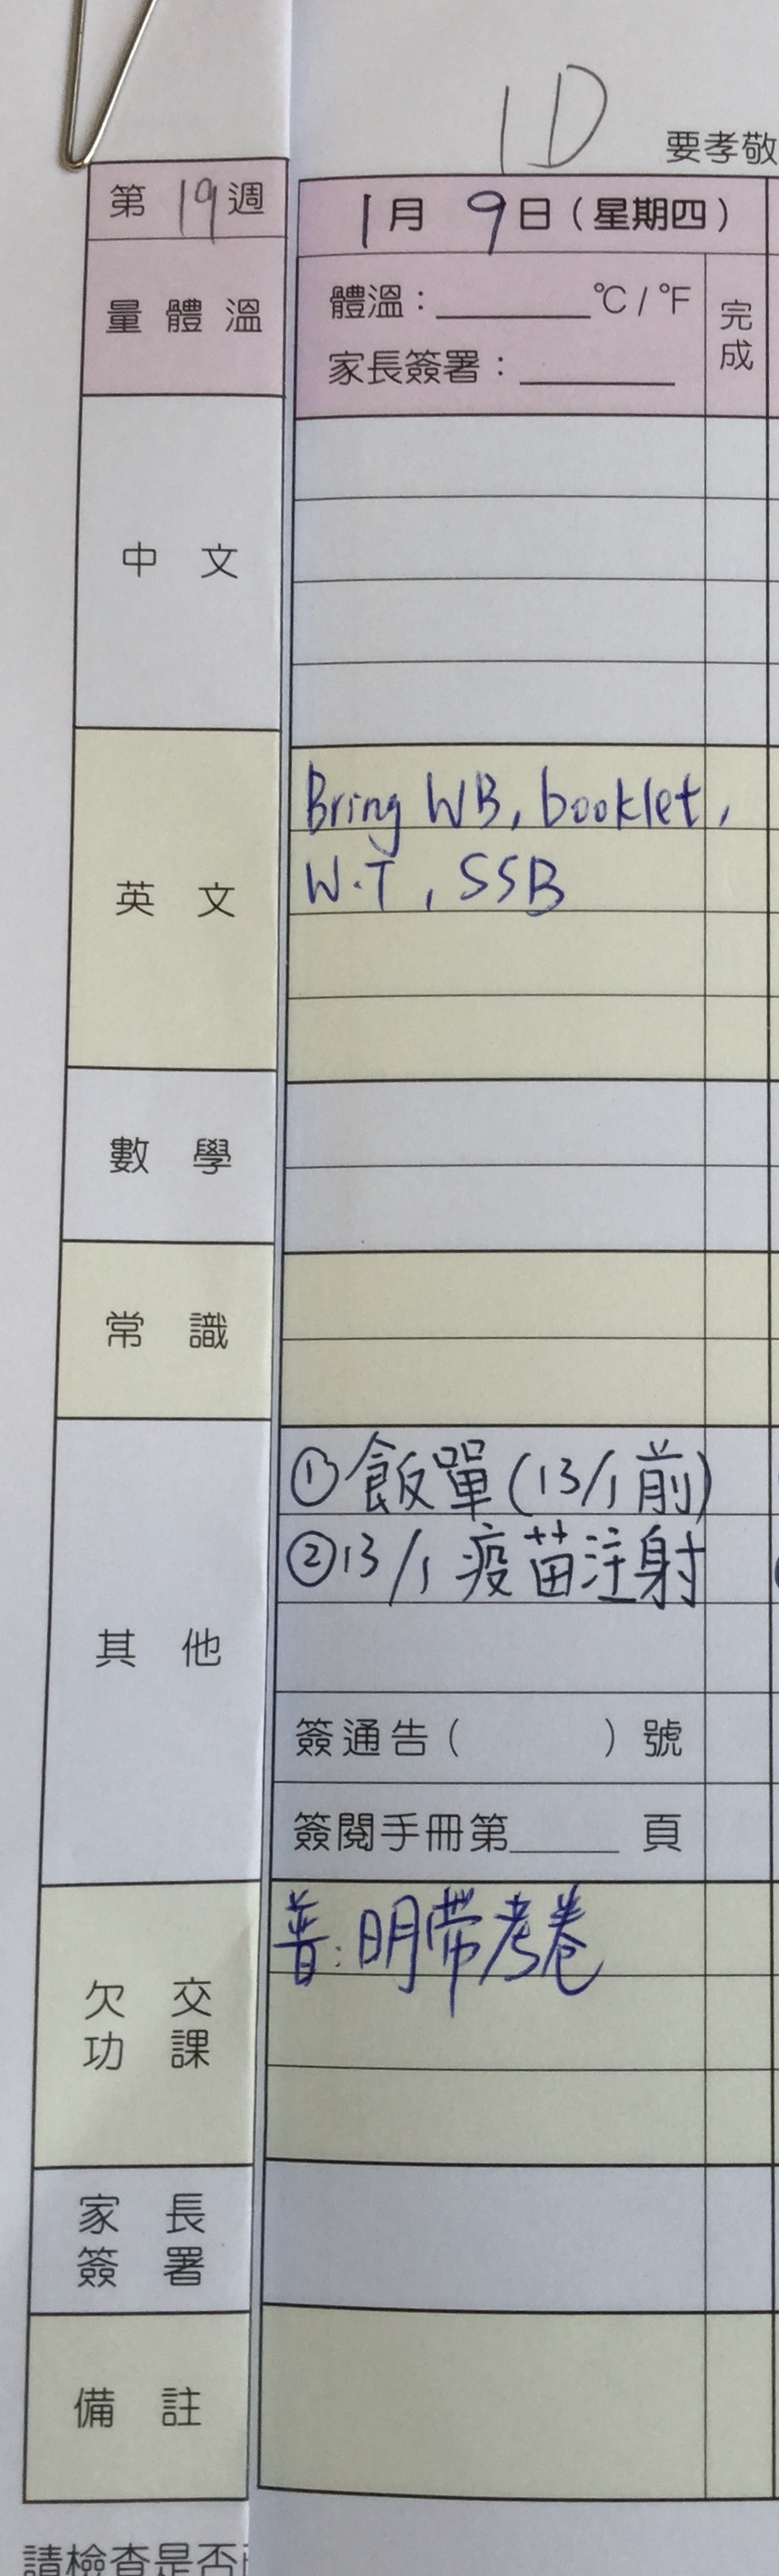 1D
要孝敬
第 19 週
1 月 9 日（星期四）
量體溫
體溫：______°C / °F
家長簽署：______
完成
中文
英文
Bring WB, booklet,
W.T, SSB
數學
常識
其他
①飯單(13/1前)
②13/1 疫苗注射
簽通告（ ）號
簽閱手冊第____ 頁
欠交
功課
普:明帶考卷
家長
簽署
備註
請檢查是否